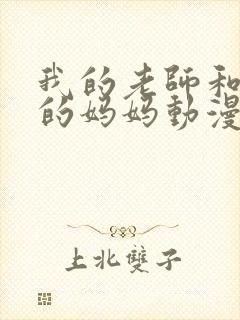 我的老師和
的妈妈動漫
上北雙子